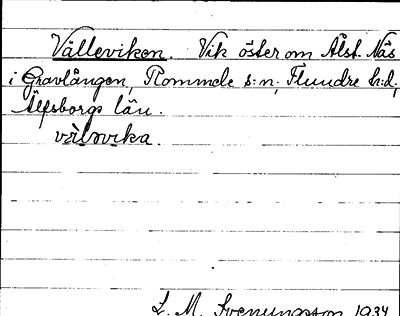 Välleviken. Vik öster om Ålst. Näs
i Gravlången, Rommele s:n, Flundre h:d,
Älfsborgs län.
L. M. Svenungsson 1934